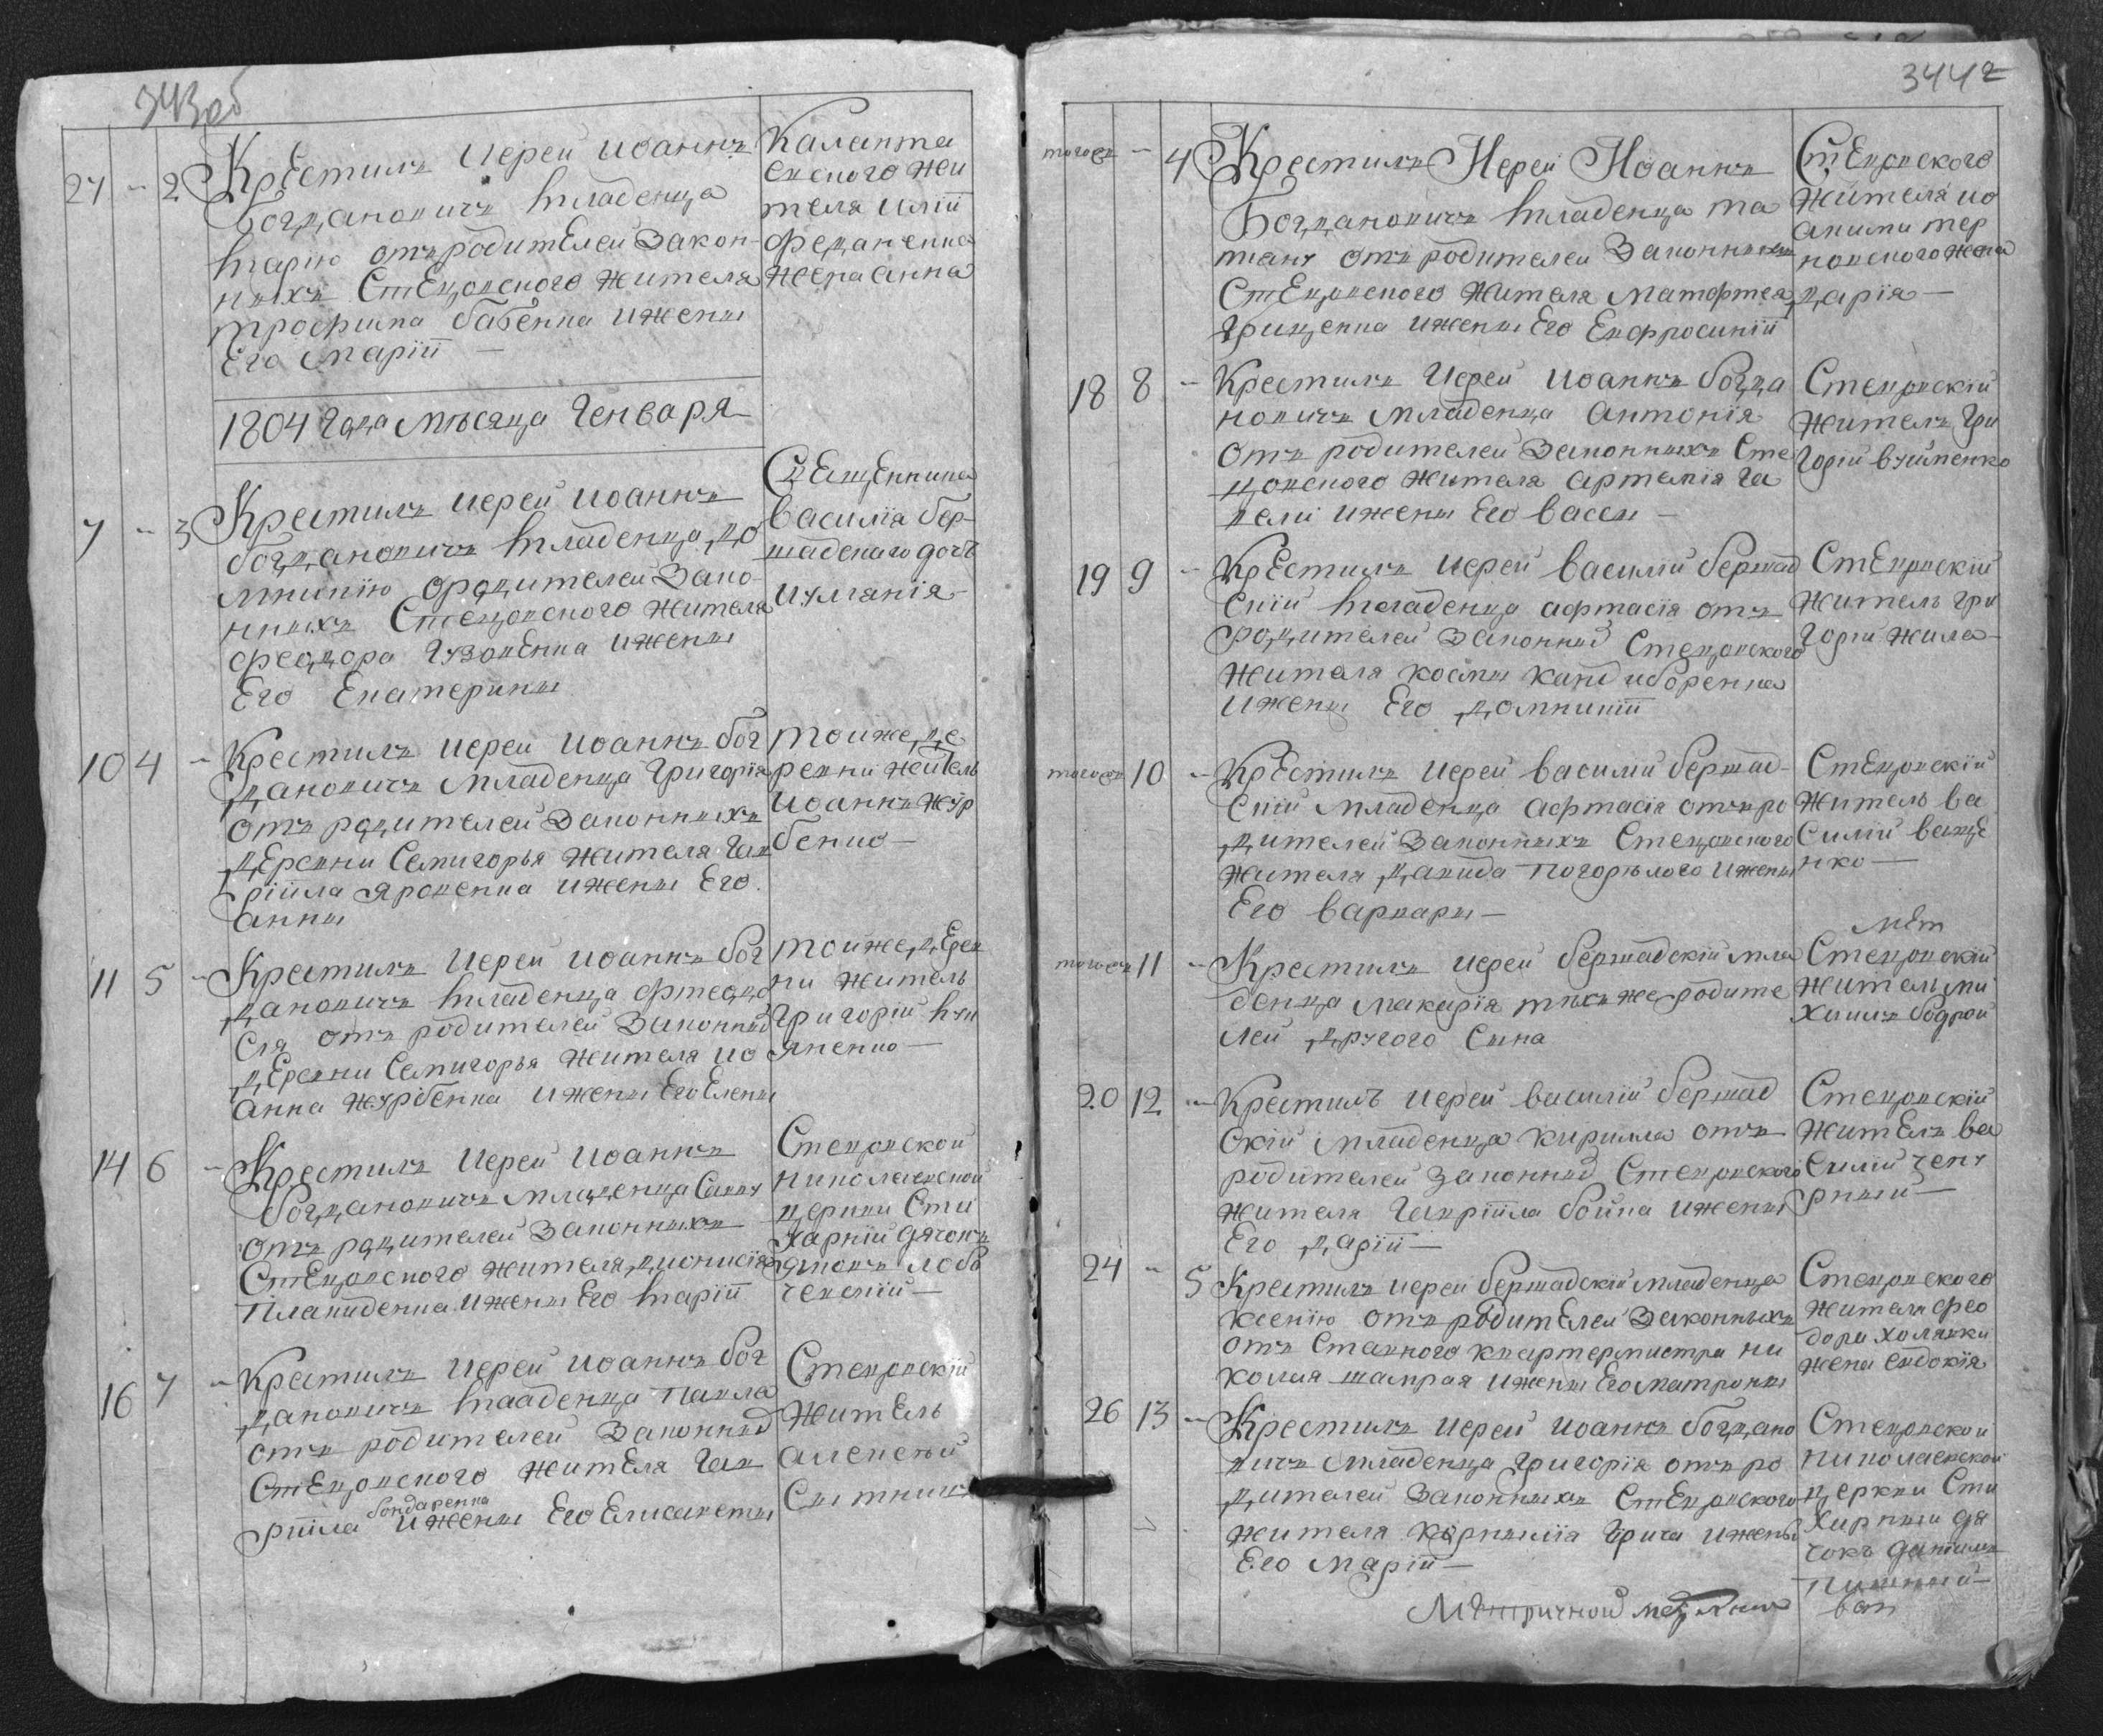 343об
27 - 2 Крестилъ Иерей Иоаннъ
Богдановичъ младенца
марию отъ родителей закон-
ныхъ Стецовского жителя
трофима бабенка и жены
Его Марiи —
Каланта
евского жи
теля Илiи
жена анна
1804 Года Мѣсяца Генваря
7 - 3 Крестилъ Иерей Иоаннъ
богдановичъ младенца до
мникiю о родителей зако-
нныхъ Стецовского жителя
феодора Гузовенка и жены
Его Екатерины
Священника
василiя бер-
шадскаго дочь
иулianiя
10 4 - Крестилъ Иерей Иоаннъ бог
дановичъ младенца григорiя
отъ родителей законныхъ
деревни Семигорья жителя гав
рiила яровенка и жены Его
анны
тоиже де
ревни житель
Иоаннъ жур
бенко —
11 5 - Крестилъ Иерей Иоаннъ бог
дановичъ младенца фтеодо
сiя отъ родителей законных
деревни Семигорья жителя ио
анна журбенка и жены Его Елены
тоиже дерев
ни житель
григорiй
14 6 - Крестилъ Иерей Иоаннъ
богдановичъ младенца Савву
отъ родителей законныхъ
Стецовского жителя дионисiя
Плакиденка и жены Его марiи
Стецовской
николаевской
церкви Сти
харнiй дячокъ
16 7 - Крестилъ Иерей Иоаннъ бог
дановичъ младенца павла
отъ родителей законных
Стецовского жителя гав
бондаренка
рiила и жены Его Елисаветы
Стецовскiй
житель
алексѣй
Сытникъ
344
тогожъ - 4 Крестилъ Иерей Иоаннъ
Богдановичъ младенца та
тiану отъ родителей законныхъ
Стецовского жителя матфтея
Грищенка и жены Его Евфросинiи
Стецовского
жителя ио
акима тер
новского жена
дарiя —
18 8 - Крестилъ Иерей Иоаннъ богда
новичъ младенца антонiя
отъ родителей законныхъ Сте
цовского жителя артемiя
и жены Его вассы —
Стецовскiй
житель гри
горiй
19 9 - Крестилъ Иерей василiй бершад
скiй младенца афтасiя отъ
родителей законных Стецовского
жителя космы кандиборенка
и жены Его домникiи
Стецовскiй
житель гри
горiй жила —
тогожъ 10 - Крестилъ Иерей василiй бершад-
скiй младенца афтасiя отъ ро
дителей законныхъ Стецовского
жителя давида погорѣлого и жены
Его варвары —
Стецовскiй
житель ва
силiй ваще
нко —
тогожъ 11 - Крестилъ Иерей бершадскiй мла
денца макарiя тѣхъже родите
лей другого Сына
Стецовскiй
житель ми
хаилъ бодрой
20 12 - Крестилъ Иерей василiй бершад
скiй младенца кирилла отъ
родителей законных Стецовского
жителя гаврiила бойка и жены
Его дарiи —
Стецовскiй
житель ва
силiй чепу
рный —
24 - 5 Крестилъ Иерей бершадскiй младенца
ксенiю отъ родителей законныхъ
отъ Ставного квартермистра ни
колая шамрая и жены Его матроны
Стецовского
жителя фео
дора холявки
жена евдокiя
26 13 - Крестилъ Иерей Иоаннъ богдано
вичъ младенца григорiя отъ ро
дителей законныхъ Стецовского
жителя корнилiя грича и жены
Его марiи —
Стецовской
николаевской
церкви Сти
харный дя
чокъ данiилъ